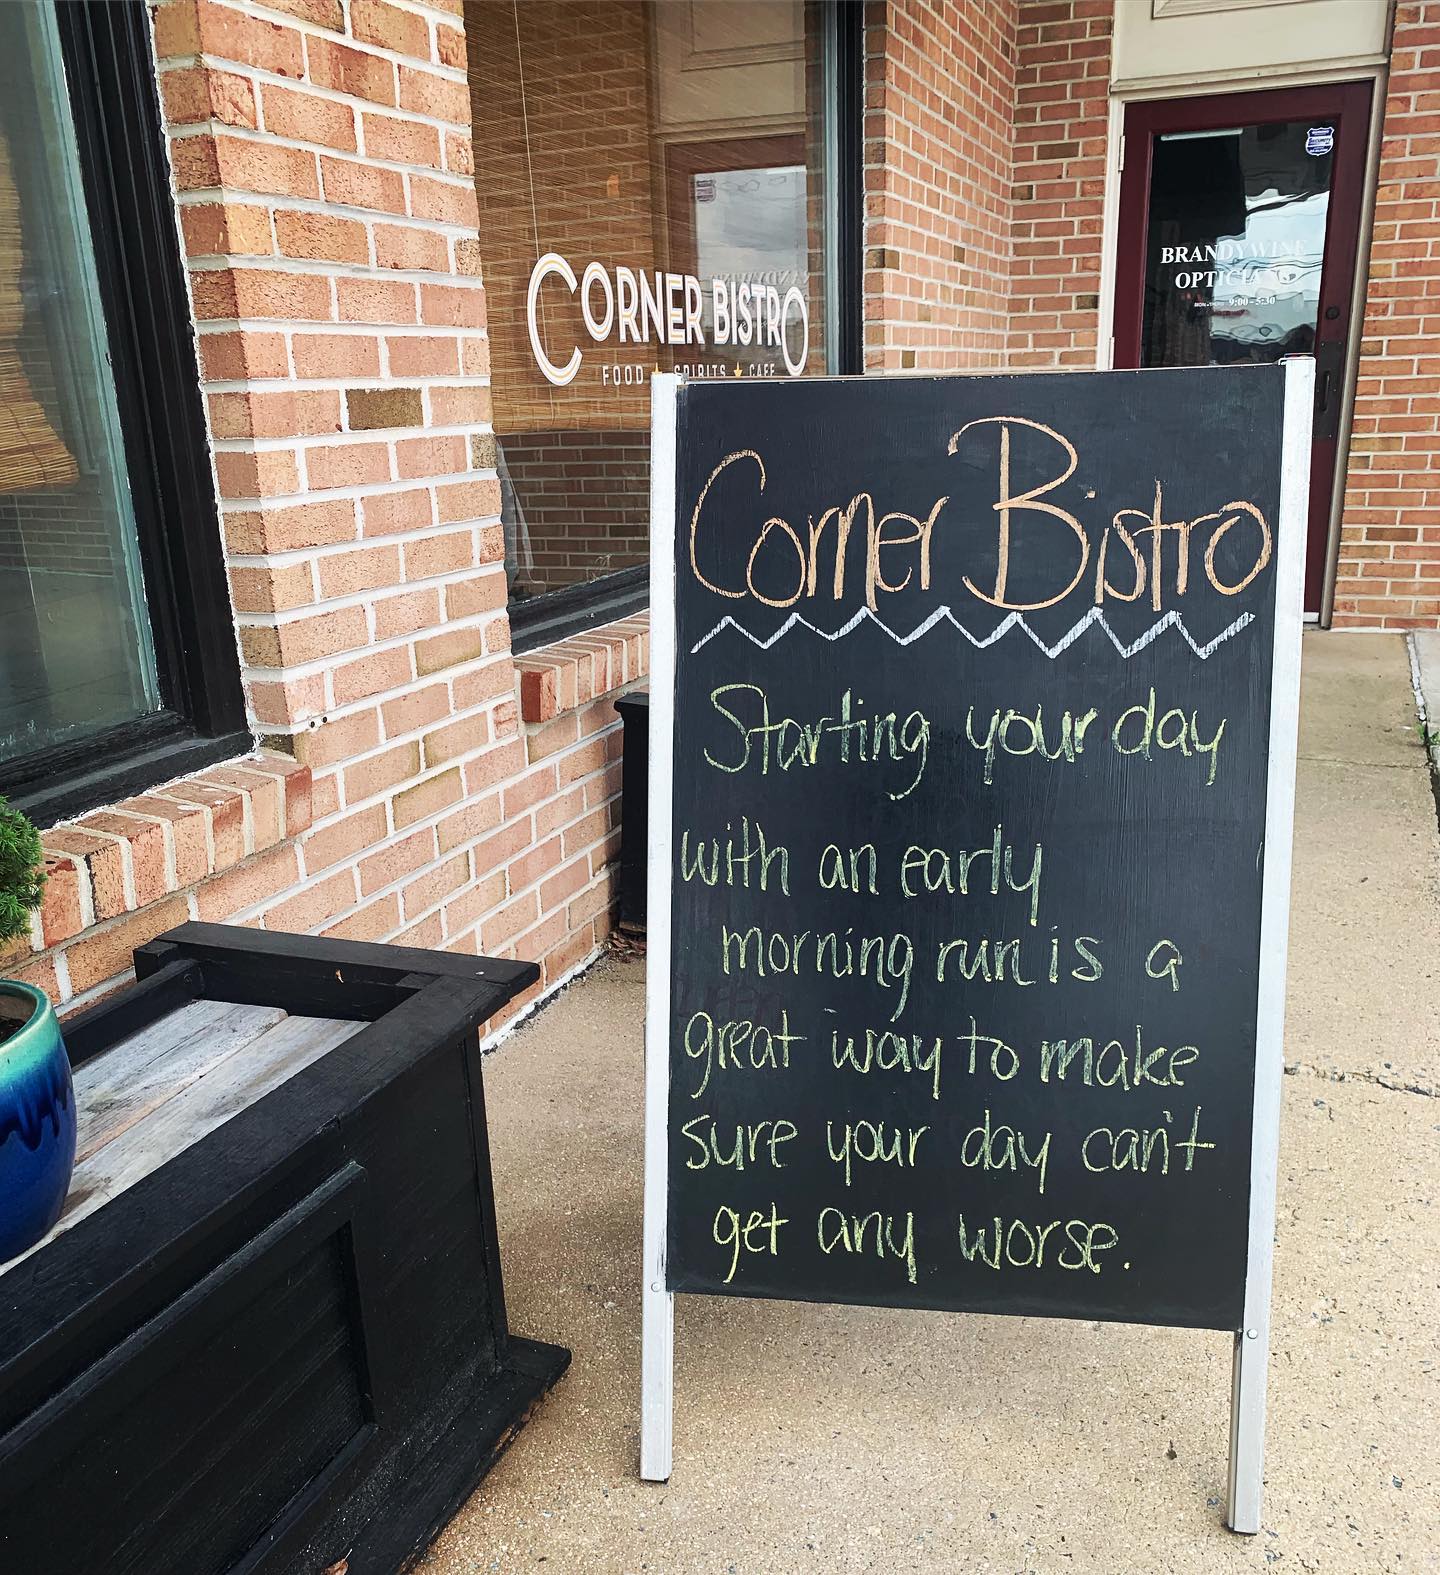 CORNER BISTRO
FOOD ★ SPIRITS ★ CAFE
BRANDYWINE
OPTICIANS
9:00-5:30
Corner Bistro
Starting your day
with an early
morning run is a
great way to make
sure your day can't
get any worse.